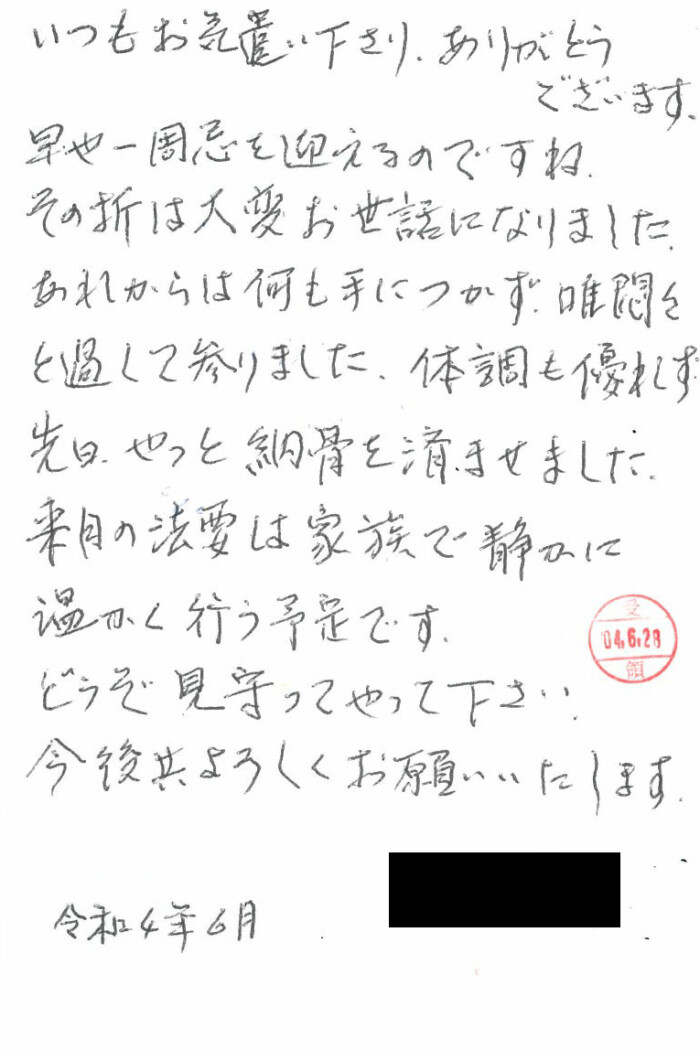 いつもお気遣い下さり、ありがとう
ございます。
早や一周忌を迎えるのですね。
その折は大変お世話になりました。
あれからは何も手につかず、唯悶々
と過して参りました。体調も優れず
先日、やっと納骨を済ませました。
来月の法要は家族で静かに
温かく行う予定です。
受
04.6.28
領
どうぞ見守ってやって下さい。
今後共よろしくお願いいたします。
令和4年6月